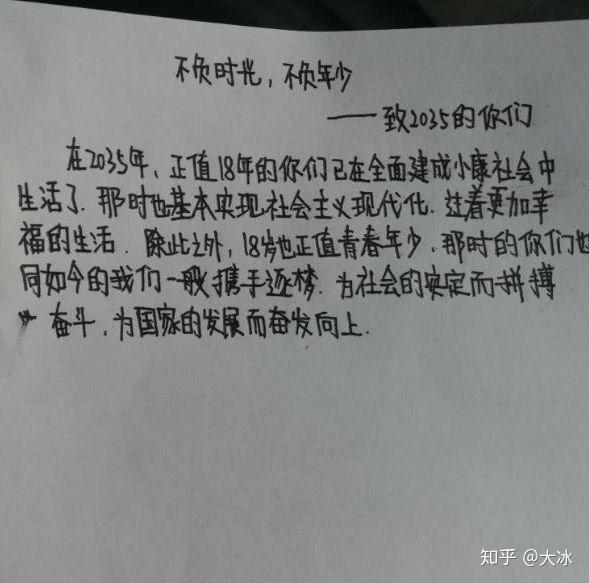 不负时光，不负年少
——致2035的你们
在2035年，正值18年的你们已在全面建成小康社会中
生活了.那时也基本实现社会主义现代化.过着更加幸
福的生活.除此之外，18岁也正值青春年少.那时的你们也
同如今的我们一般携手逐梦.为社会的安定而拼搏
奋斗.为国家的发展而奋发向上.
知乎 @大冰